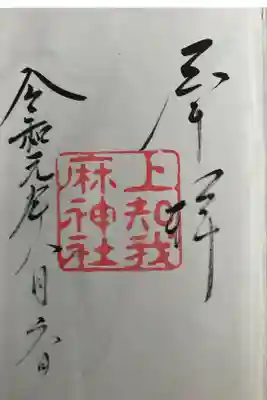 奉拝
上知我
麻神社
令和元年八月六日